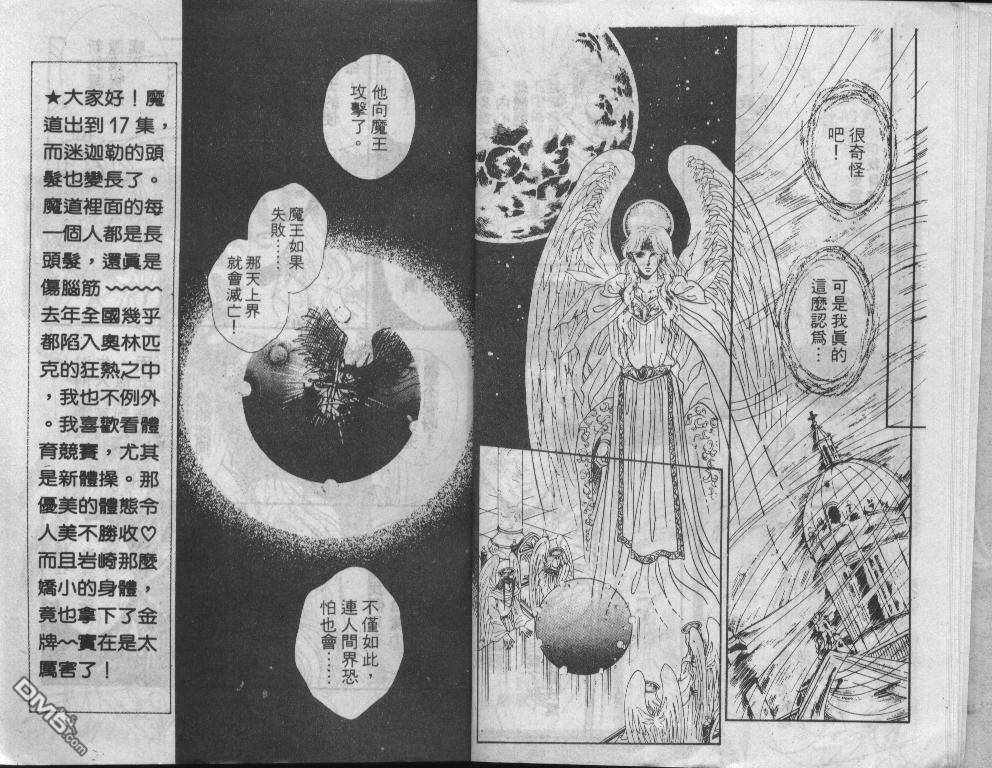 很奇怪
吧！
可是我真的
這麼認為…
他向魔王
攻擊了。
魔王如果
失敗……
那天上界
就會滅亡！
不僅如此，
連人間界恐
怕也會……
★大家好！魔
道出到17集，
而迷迦勒的頭
髮也變長了。
魔道裡面的每
一個人都是長
頭髮，還真是
傷腦筋～～～～～
去年全國幾乎
都陷入奧林匹
克的狂熱之中
，我也不例外
。我喜歡看體
育競賽，尤其
是新體操。那
優美的體態令
人美不勝收♡
而且岩崎那麼
嬌小的身體，
竟也拿下了金
牌～實在是太
厲害了！
DM5.com